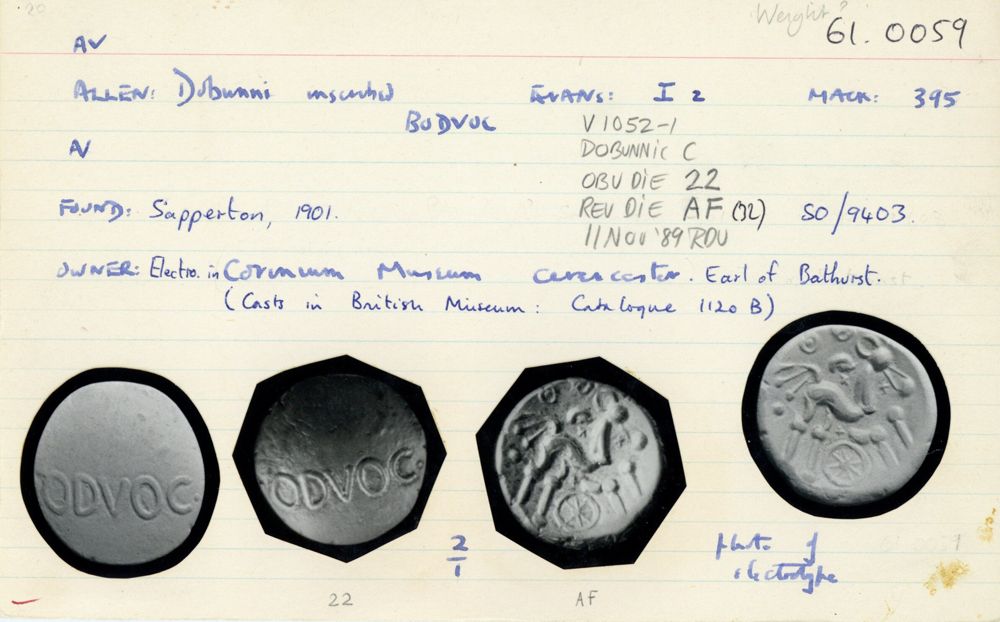 20
Weight?
61. 0059
AV
ALLEN: Dobunni inscribed EVANS: I 2 MACK: 395
BODVOC
V1052-1
AV DOBUNNIC C
OBV DIE 22
FOUND: Sapperton, 1901. REV DIE AF (32) SO/9403.
11 NOV '89 RDV
OWNER: Electro. in Corinium Museum Cirencester. Earl of Bathurst.
(Casts in British Museum: Catalogue 1120 B)
ODVOC
ODVOC
2
1
photo of
electrotype
22 AF